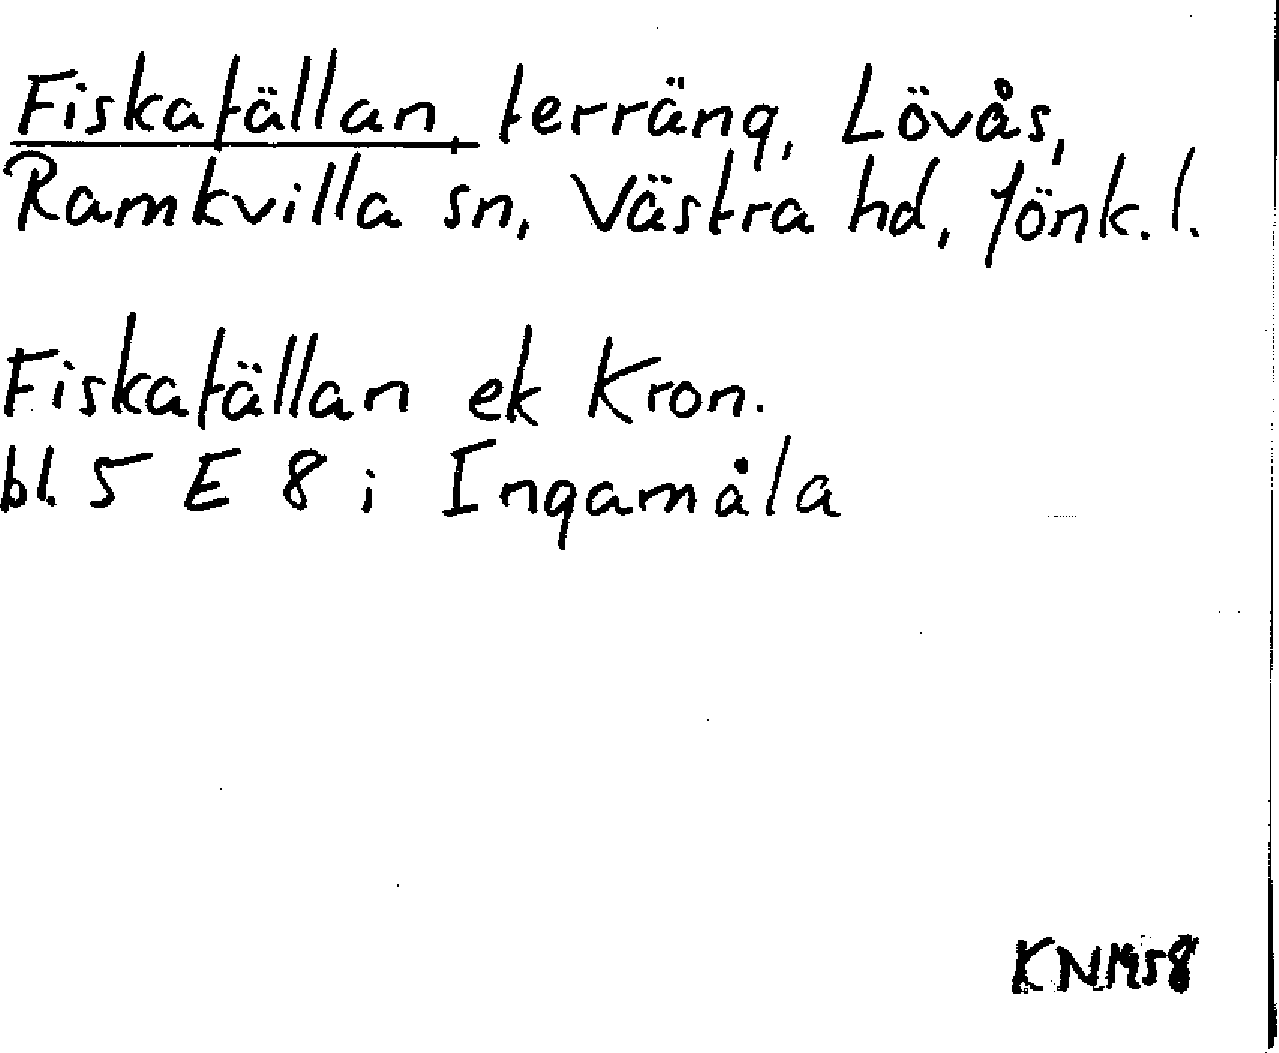 Fiskafällan, terräng, Lövås,
Ramkvilla sn, Västra hd, Jönk. l.
Fiskafällan ek Kron.
bl. 5 E 8 i Ingamåla
KN 1958